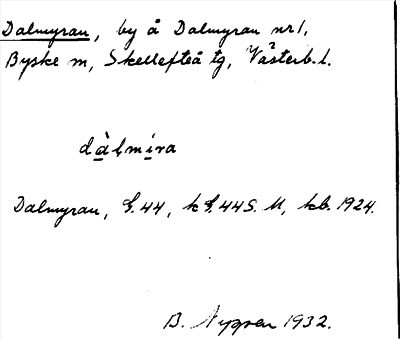 Dalmyran, by å Dalmyran nr 1,
Byske m, Skellefteå tg, Västerb. l.
dàlmira
Dalmyran, G. 44, k G. 44 S. U, kb. 1924.
B. Nygren 1932.